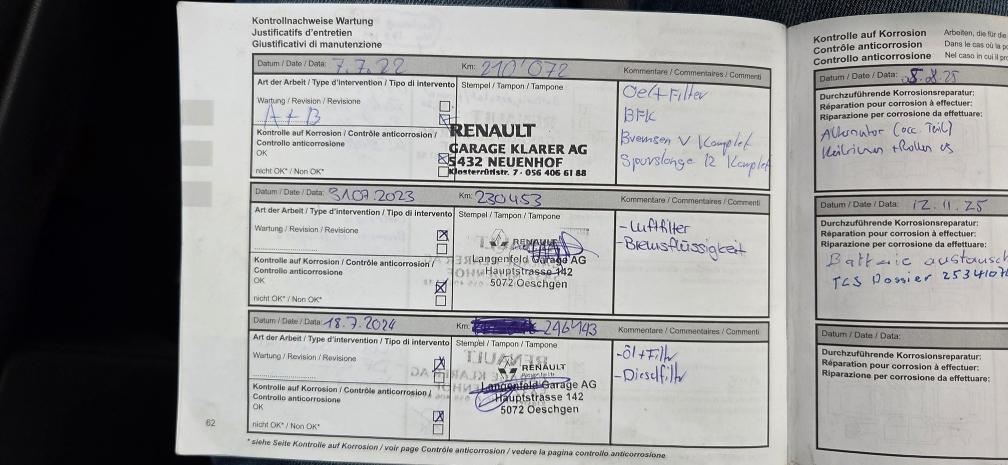 Kontrollnachweise Wartung
Justificatifs d'entretien
Giustificativi di manutenzione
Datum / Date / Data: 7.7.22 Km: 210'072 Kommentare / Commentaires / Commenti
Art der Arbeit / Type d'intervention / Tipo di intervento Stempel / Tampon / Tampone
Wartung / Revision / Revisione
A + B
Kontrolle auf Korrosion / Contrôle anticorrosion /
Controllo anticorrosione
OK
nicht OK* / Non OK*
RENAULT
GARAGE KLARER AG
5432 NEUENHOF
Klosterrütistr. 7 · 056 406 61 88
Oel + Filter
BFK
Bremsen V Komplet
Spurstange 12 Komplet
Datum / Date / Data: 31.07.2023 Km: 230453 Kommentare / Commentaires / Commenti
Art der Arbeit / Type d'intervention / Tipo di intervento Stempel / Tampon / Tampone
Wartung / Revision / Revisione
Kontrolle auf Korrosion / Contrôle anticorrosion /
Controllo anticorrosione
OK
nicht OK* / Non OK*
RENAULT
Langenfeld Garage AG
Hauptstrasse 142
5072 Oeschgen
- Luftfilter
- Bremsflüssigkeit
Datum / Date / Data: 18.7.2024 Km: 246443 Kommentare / Commentaires / Commenti
Art der Arbeit / Type d'intervention / Tipo di intervento Stempel / Tampon / Tampone
Wartung / Revision / Revisione
Kontrolle auf Korrosion / Contrôle anticorrosion /
Controllo anticorrosione
OK
nicht OK* / Non OK*
RENAULT
Langenfeld Garage AG
Hauptstrasse 142
5072 Oeschgen
- Öl + Filtr
- Dieselfiltr
62
* siehe Seite Kontrolle auf Korrosion / voir page Contrôle anticorrosion / vedere la pagina controllo anticorrosione
Kontrolle auf Korrosion Arbeiten, die für die
Contrôle anticorrosion Dans le cas où la
Controllo anticorrosione Nel caso in cui il
Datum / Date / Data: 8.8.25
Durchzuführende Korrosionsreparatur:
Réparation pour corrosion à effectuer:
Riparazione per corrosione da effettuare:
Alternator (occ. Teil)
Keilriemen + Rollen
Datum / Date / Data: 12.11.25
Durchzuführende Korrosionsreparatur:
Réparation pour corrosion à effectuer:
Riparazione per corrosione da effettuare:
Batterie austausch
TCS Dossier 253410
Datum / Date / Data:
Durchzuführende Korrosionsreparatur:
Réparation pour corrosion à effectuer:
Riparazione per corrosione da effettuare: